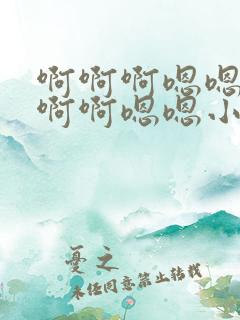 啊啊啊嗯嗯
啊啊嗯嗯小
忧之
未经同意禁止转载